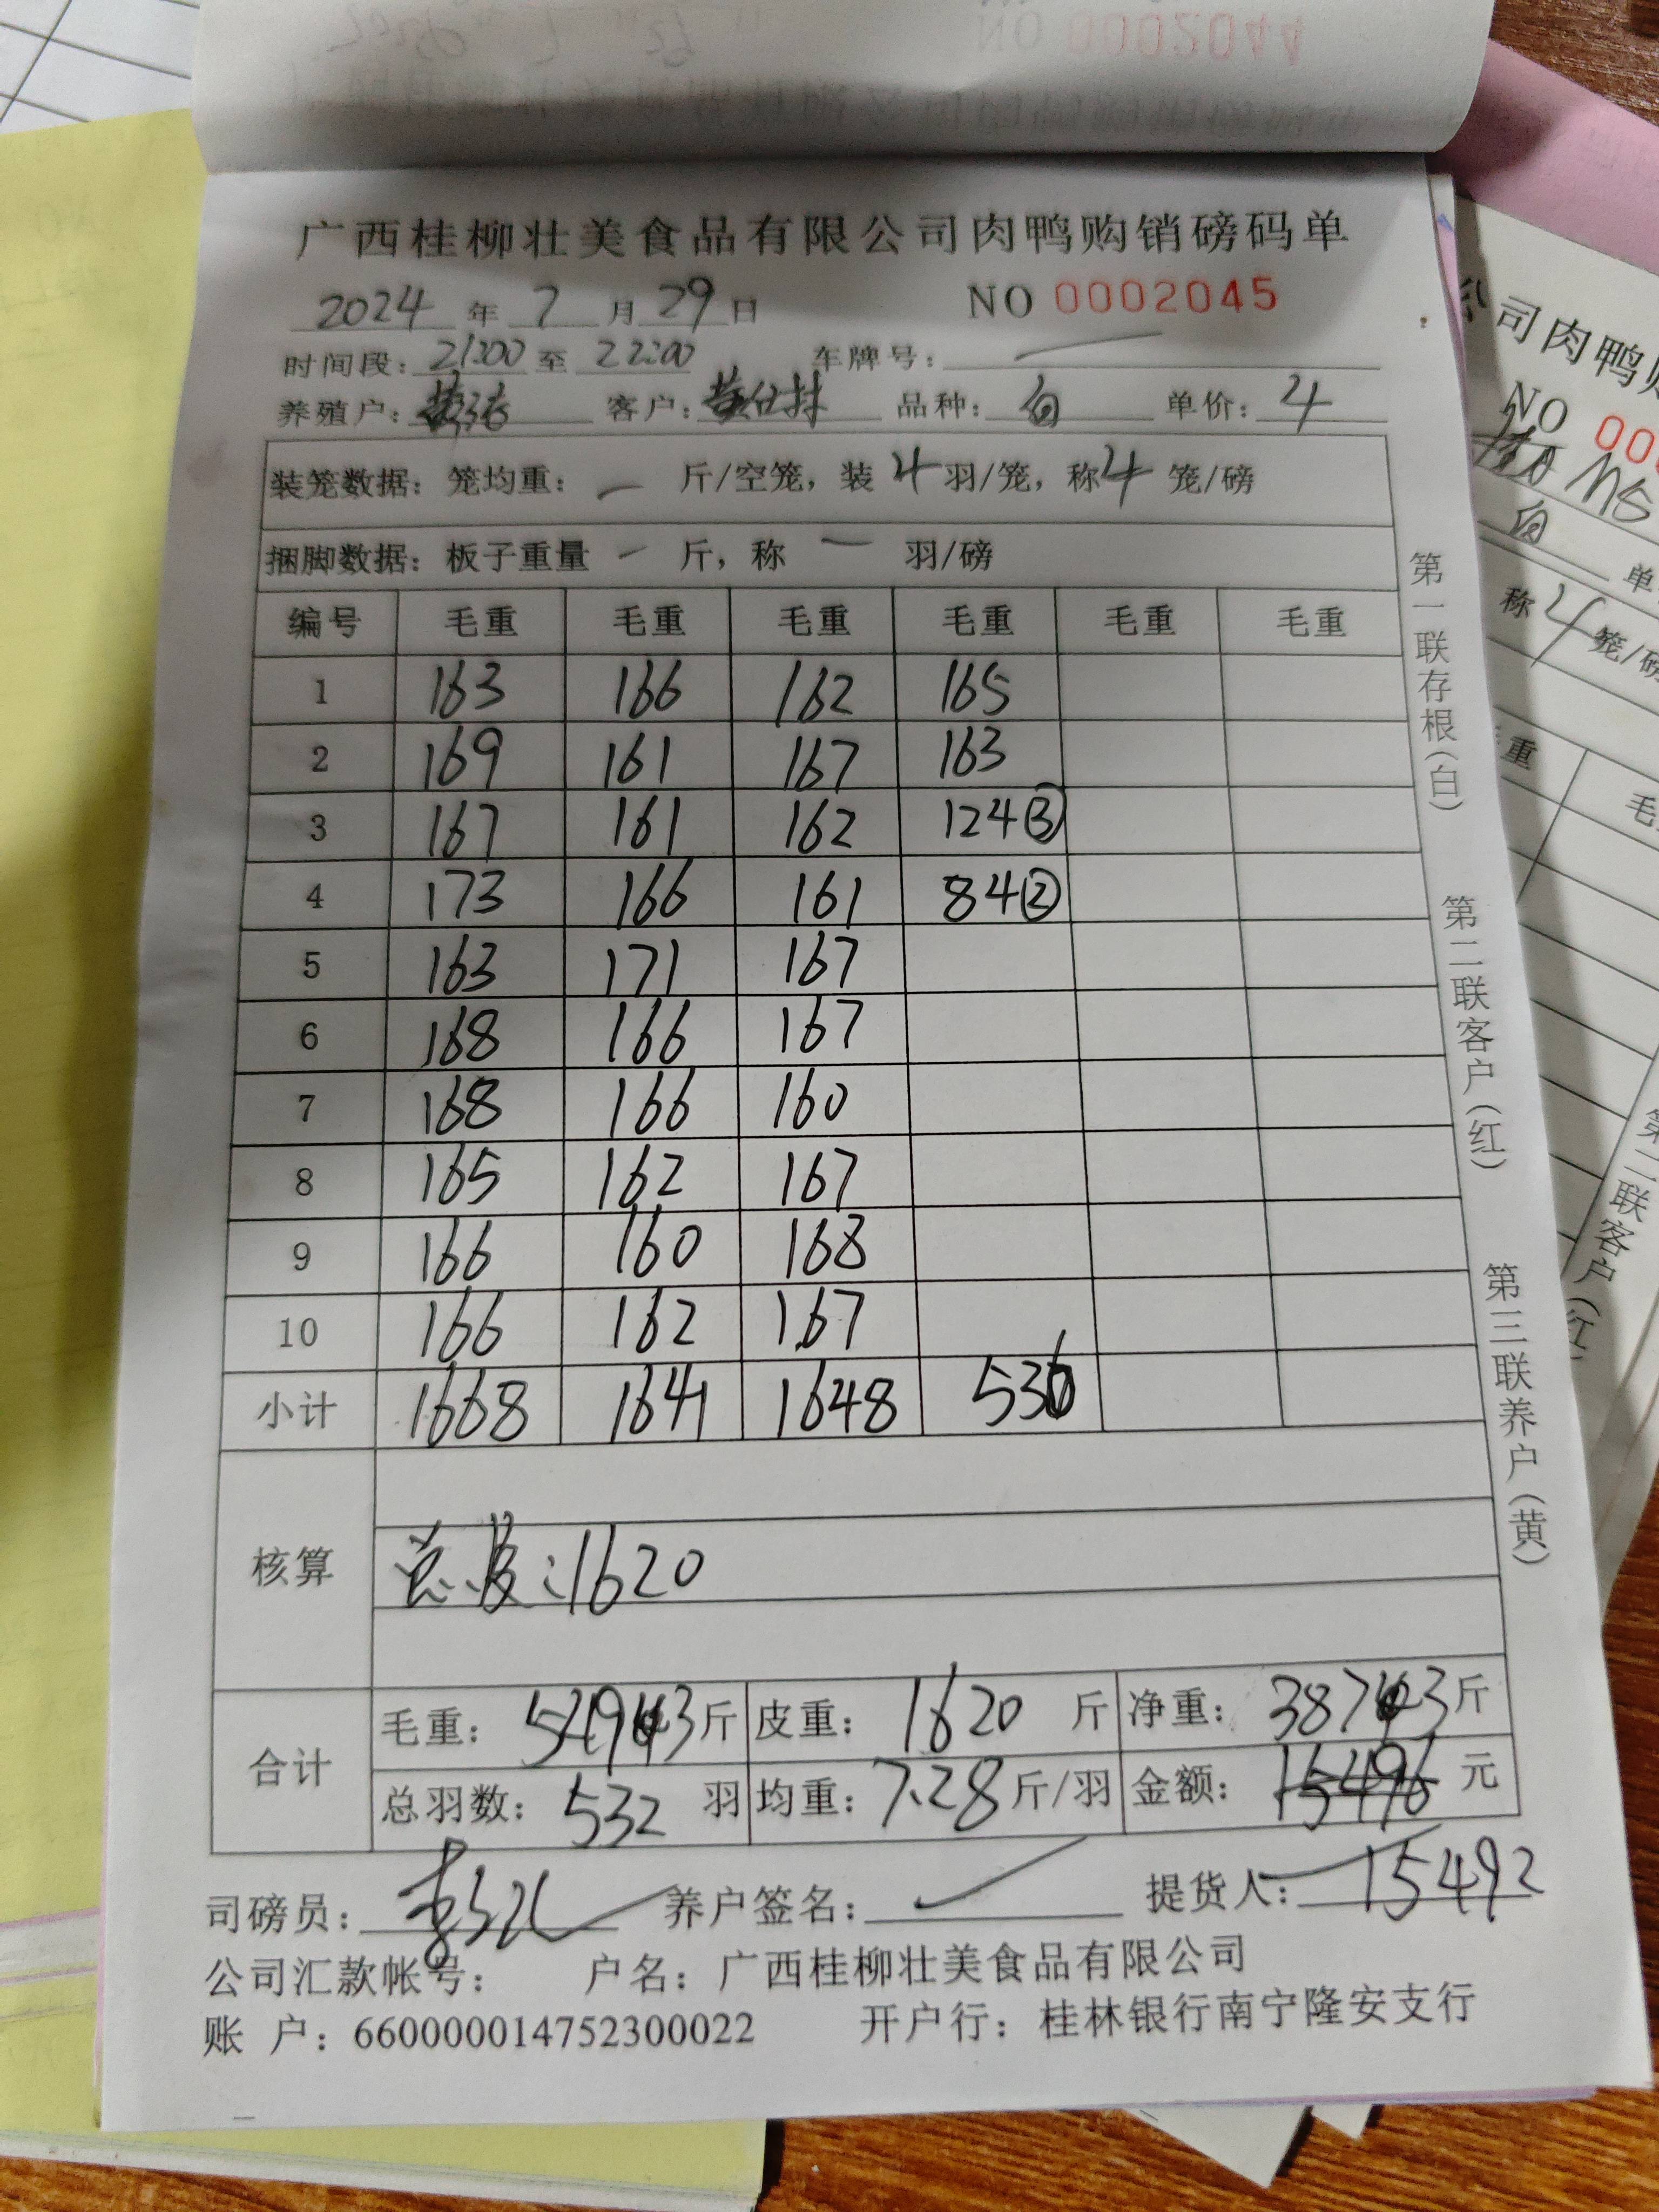 NO 0002044
广西桂柳壮美食品有限公司肉鸭购销磅码单
2024年7月29日 NO 0002045
时间段：21:00至22:00 车牌号：
养殖户： 客户： 品种：白 单价：4
装笼数据：笼均重：— 斤/空笼，装4羽/笼，称4笼/磅
捆脚数据：板子重量 — 斤，称 — 羽/磅
编号 毛重 毛重 毛重 毛重 毛重 毛重
1 163 166 162 165
2 169 161 167 163
3 167 161 162 124③
4 173 166 161 84②
5 163 171 167
6 168 166 167
7 168 166 160
8 165 162 167
9 166 160 168
10 166 162 167
小计 1668 1641 1648 536
核算 总皮：1620
合计 毛重：5493斤 皮重：1620斤 净重：3873斤
总羽数：532羽 均重：7.28斤/羽 金额：15496元
司磅员： 养户签名： 提货人： 15492
公司汇款帐号： 户名：广西桂柳壮美食品有限公司
账 户：660000014752300022 开户行：桂林银行南宁隆安支行
第一联存根（白）
第二联客户（红）
第三联养户（黄）
公司肉鸭购
NO 00
白 单
称4笼/磅
重 毛
第二联客户（红）